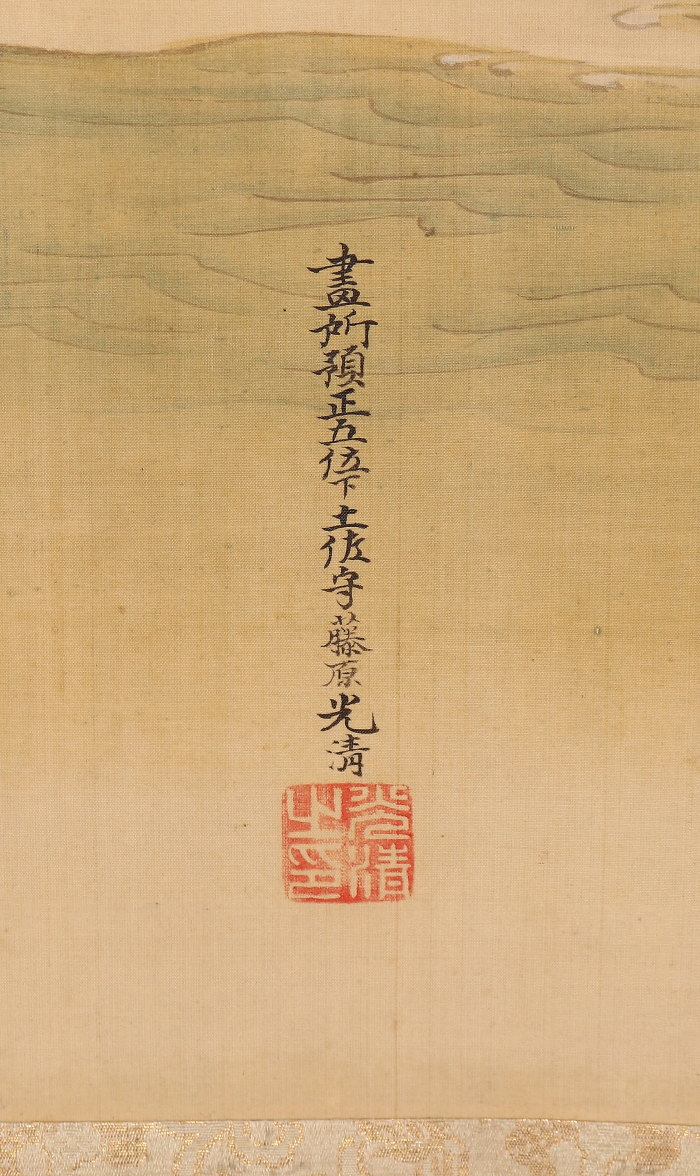 畫所預正五位下土佐守藤原光清
光清
之印